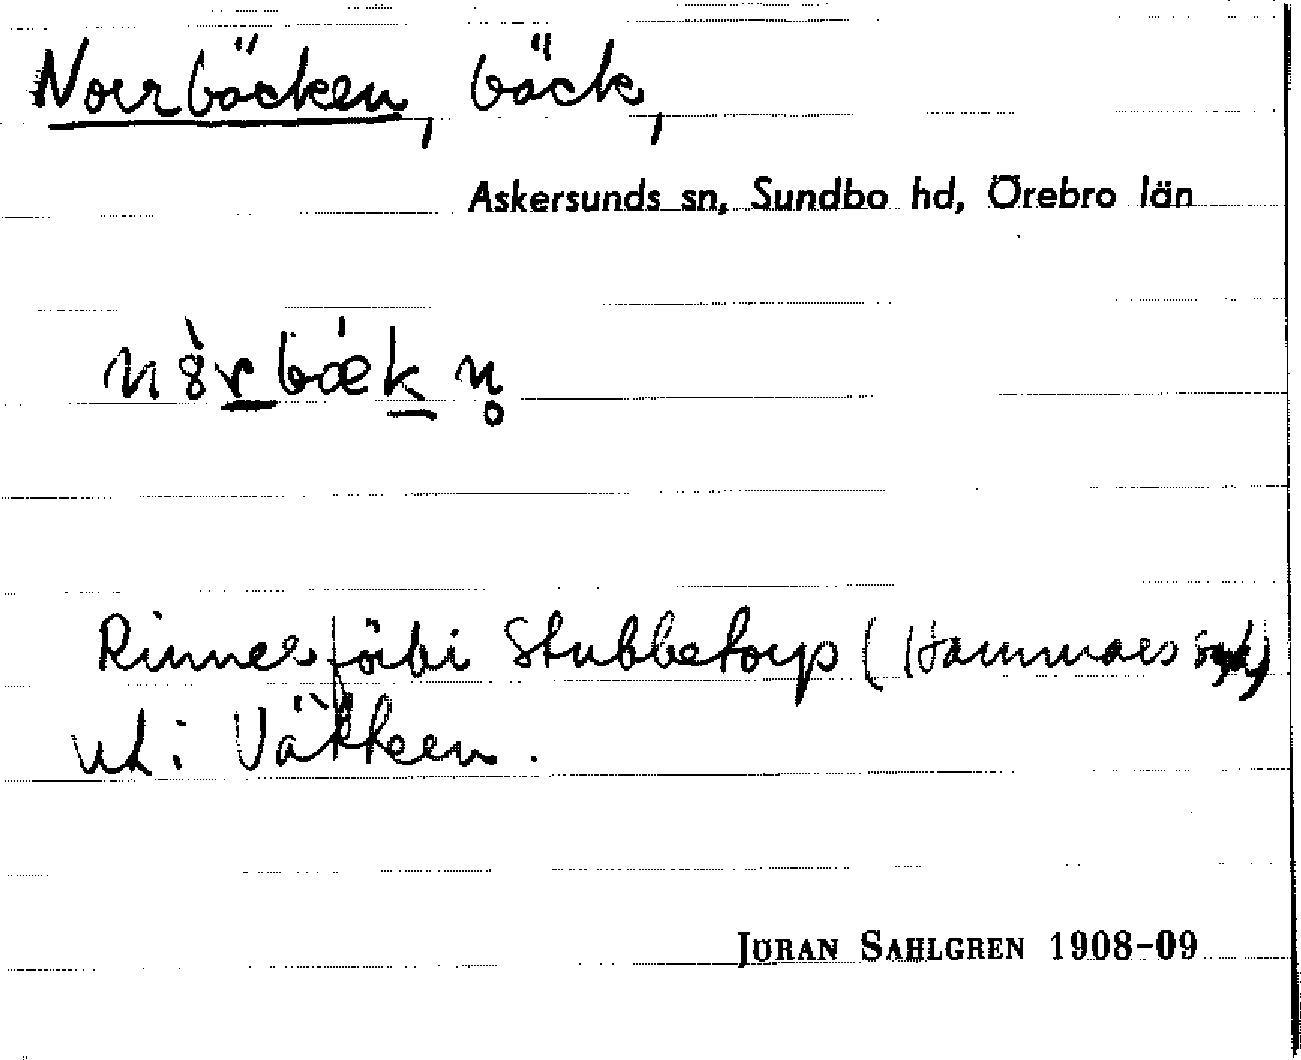 Norrbäcken, bäck,
Askersunds sn, Sundbo hd, Örebro län
n8̀r̲bæ̍k̲n̥
Rinner förbi Stubbetorp (Hammars sn)
ut i Vättern.
JÖRAN SAHLGREN 1908-09